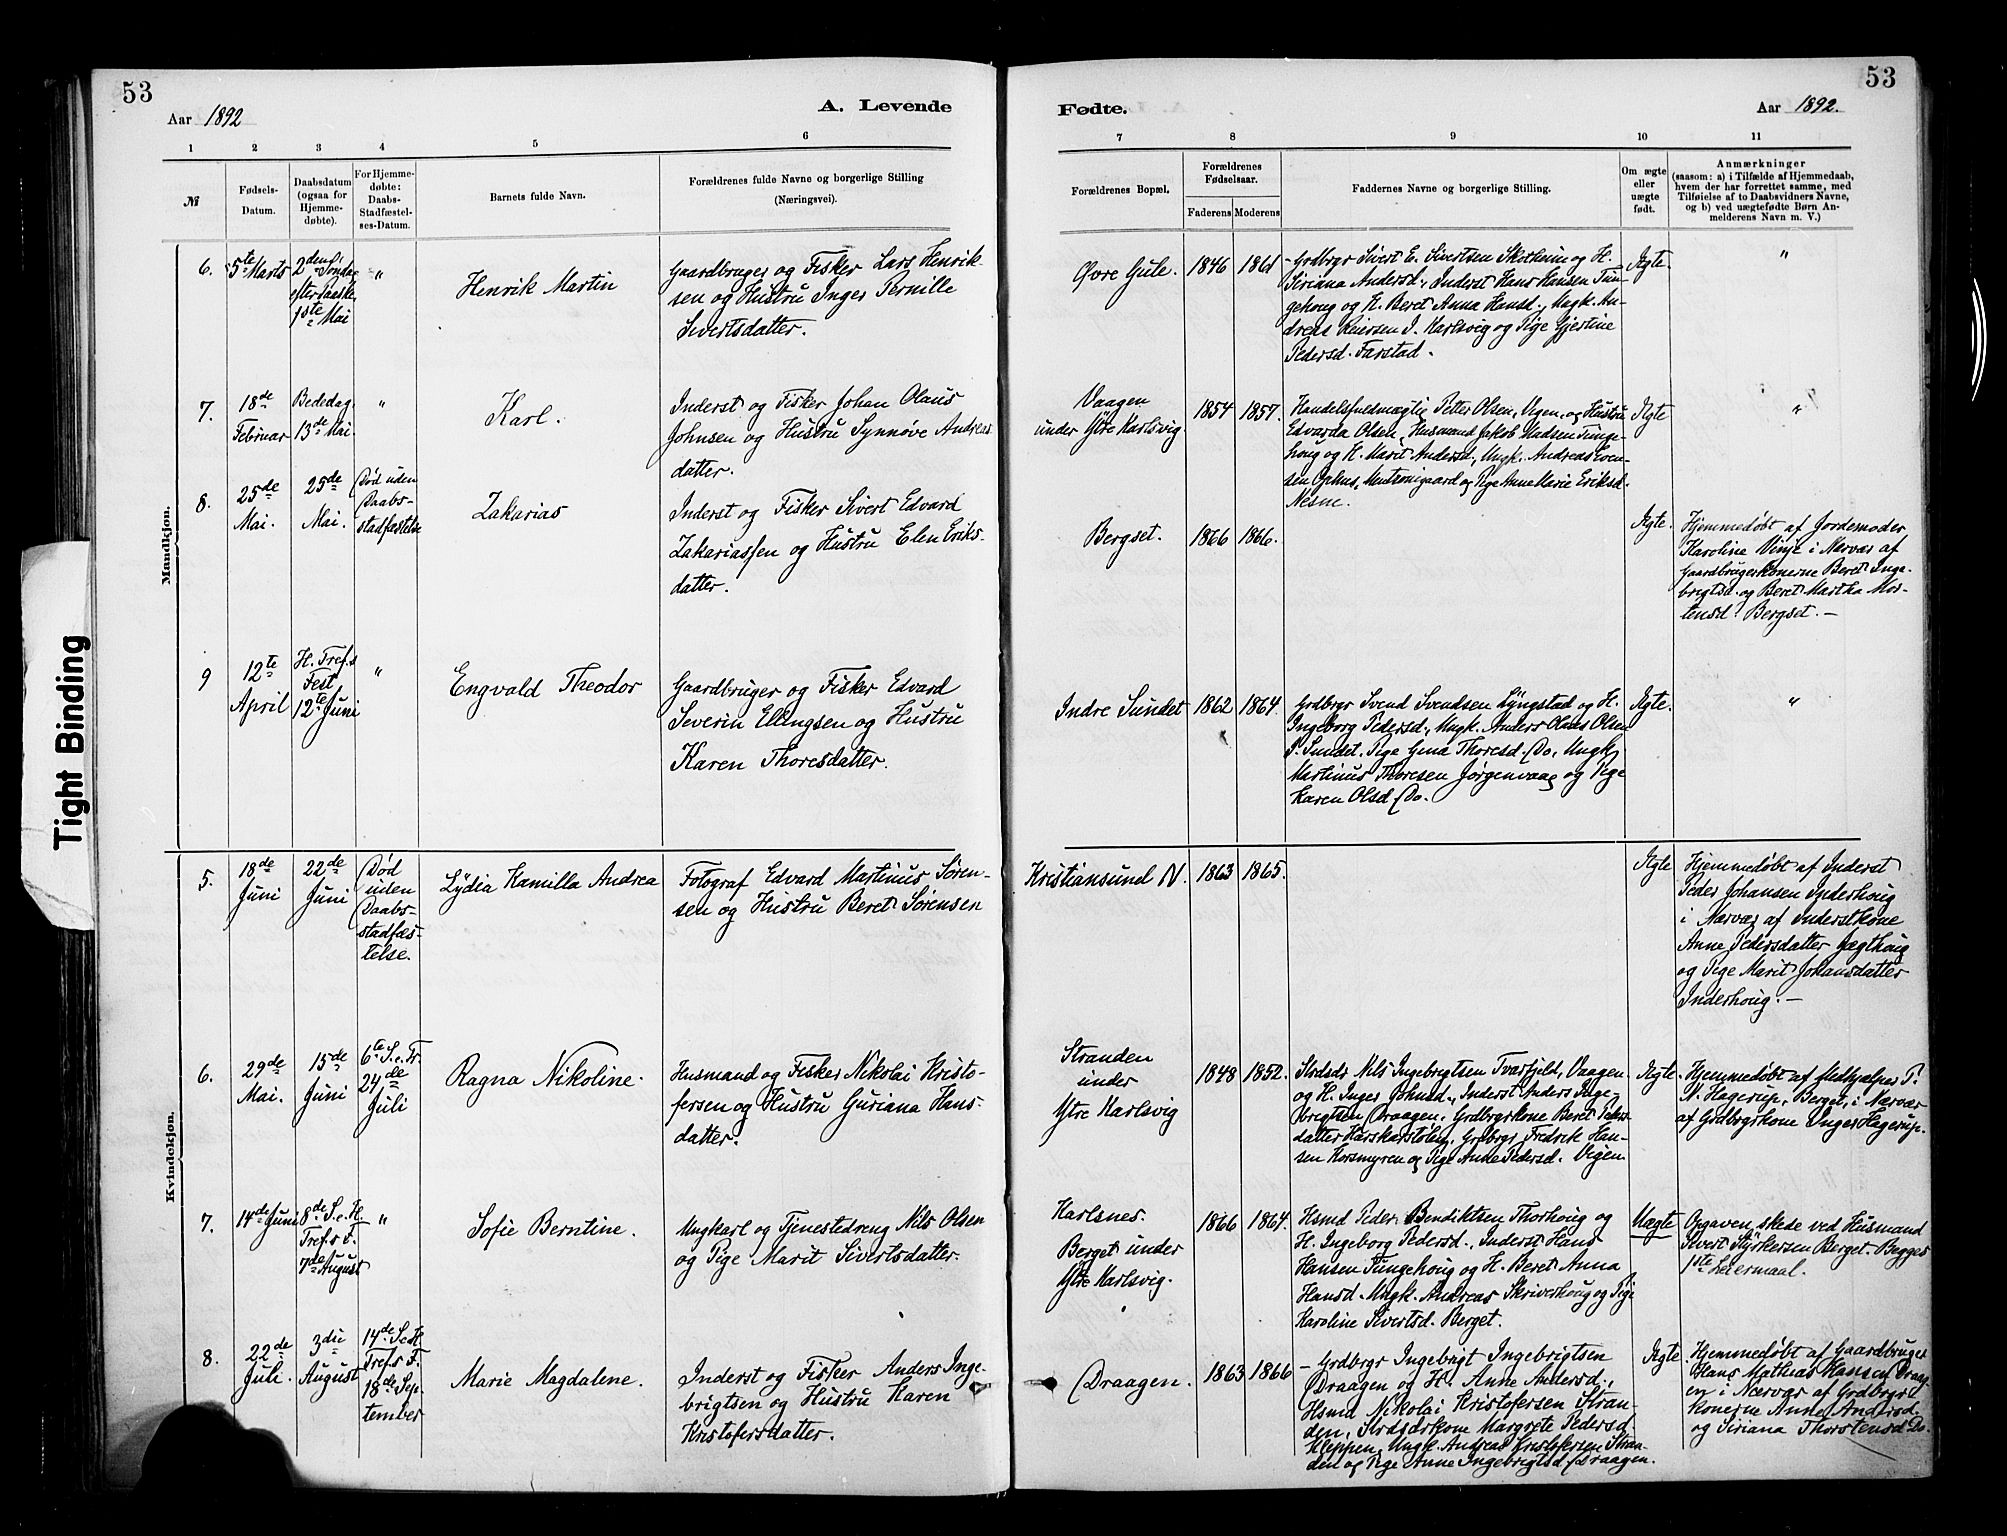 53
Aar 1892
A. Levende
1
2
3
4
5
6
№
Fødsels-
Datum.
Daabsdatum
(ogsaa for
Hjemme-
døbte).
For Hjemme-
døbte:
Daabs-
Stadfæstel-
ses-Datum.
Barnets fulde Navn.
Forældrenes fulde Navne og borgerlige Stilling
(Næringsvei).
Mandkjøn.
6.
5te Marts
2den S.
Søndag
efter Paaske
1ste Mai
"
Henrik Martin
Gaardbruger og Fisker Lars Henrik-
sen og Hustru Inger Pernille
Sivertsdatter.
7.
18de
Februar
Bededag
13de Mai
"
Karl.
Inderst og Fisker Johan Olaus
Johnsen og Hustru Synnøve Andreas
datter.
8.
25de
Mai.
25de
Mai.
Død uden
Daabs-
stadfæstelse
Zakarias
Inderst og Fisker Sivert Edvard
Zakariassen og Hustru Elen Eriks-
datter.
9
12te
April
H. Tref.s
Fest
12te Juni
"
Engvald Theodor
Gaardbruger og Fisker Edvard
Severin Ellingsen og Hustru
Karen Thoresdatter.
Kvindekjøn.
5.
18de
Juni
22de
Juni
Død
uden
Daabs-
stadfæs-
telse.
Lydia Kamilla Andrea
Fotograf Edvard Martinus Søren-
sen og Hustru Beret Sørensen
6.
29de
Mai.
15de
Juni
6te S. e. Tr.
24de
Juli
Ragna Nikoline.
Husmand og Fisker Nikolai Kristo-
fersen og Hustru Guriana Hans-
datter.
7.
14de Juni
8de S. e. H.
Tref.s F.
7de August
"
Sofie Berntine.
Ungkarl og Tjenestedreng Nils Olsen
og Pige Marit Sivertsdatter.
8.
22de
Juli.
3die
August
14de S. e. H.
Tref.s F.
18de Sep-
tember
Marie Magdalene.
Inderst og Fisker Anders Inge-
brigtsen og Hustru Karen
Kristofersdatter.
Tight Binding
53
Fødte.
Aar 1892.
7
8
9
10
11
Forældrenes Bopæl.
Forældrenes
Fødselsaar.
Faderens
Moderens
Faddernes Navne og borgerlige Stilling.
Om ægte
eller
uægte
født.
Anmærkninger
(saasom: a) i Tilfælde af Hjemmedaab,
hvem der har forrettet samme, med
Tilføielse af to Daabsvidners Navne,
og b) ved uægtefødte Børn An-
melderens Navn m. V.)
Øvre Gule.
1846
1861
Grdbrgr Sivert E. Sivertsen Skotheim og H.
Siriana Andersd., Inderst Hans Hansen Tun-
gehoug og H. Beret Anna Hansd., Ungk. An-
dreas Knutsen I. Karlsvig og Pige Gjertine
Pedersd. Farstad.
Ægte.
"
Vaagen
under Ytre Karlsvig
1854
1857.
Handelsfuldmægtig Petter Olsen, Vigen, og Hustru
Edvarda Olsen, Husmand Jakob Madsen Tunge-
houg og H. Marit Andersd., Ungk. Andreas Even-
sen Ophus, og Pige Anne Marie Eriksd.
Nesne.
Ægte
"
Bergset.
1866
1866.
Ægte.
Hjemmedøbt af Jordemoder
Karoline Vinje i Nærvær af
Gaardbrugerkonerne Beret Inge-
brigtsd. og Beret Martha Mor-
tensd. Bergset. —
Indre Sundet
1862
1864.
Grdbrgr Svend Svendsen Lyngstad og H.
Ingeborg Pedersd., Ungk. Anders Olaus Olsen
I. Sundet, Pige Gina Thoresd. Do, Ungk.
Martinus Thoresen Jørgenvaag og Pige
Karen Olsd. Do.
Ægte.
"
Kristiansund N.
1863
1865.
Ægte
Hjemmedøbt af Inderst
Peder Johansen Inderhoug
i Nærvær af Inderstkone
Anne Pedersdatter Jægthoug
og Pige Marit Johansdatter
Inderhoug. —
Stranden
under
Ytre Karlsvig
1848
1852.
Strdsdr Nils Ingebrigtsen Tvarfjeld, Vaagen
og H. Inger Johnsd., Inderst Anders Inge-
brigtsen Draagen, Grdbrgrkone Beret Peders-
datter Harskarstølen, Grdbrgr Fredrik Han-
sen Korsmyren og Pige Anne Pedersd. Vigen
Ægte.
Hjemmedøbt af Medhjælper P.
N. Hagerup, Berget, i Nærvær
af Grdbrgrkone Inger Hagerup.
Karlsnes.
Berget under
Ytre Karlsvig.
1866
1864.
Hsmd Peder Bendiktsen Thorhoug og
H. Ingeborg Pedersd., Inderst Hans
Hansen Tungehoug og H. Beret Anna
Hansd. Ungk. Andreas Skriverhoug og Pige
Karoline Sivertsd. Berget.
Uægte
Opgaven skede ved Husmand
Sivert Styrkersen Berget. Begges
1ste Leiermaal.
Draagen.
1863
1866
Grdbrgr Ingebrigt Ingebrigtsen
Draagen og H. Anne Andersd.,
Hsmd Nikolai Kristofersen Stran-
den, Strdsdrkone Margrete Pedersd.
Kleppen, Ungk. Andreas Kristofersen Stran-
den og Pige Anne Ingebrigtsd. Draagen.
Ægte.
Hjemmedøbt af Gaardbruger
Hans Mathias Hansen Draag-
en i Nærvær af Grdbrgr-
konerne Anne Andersd.
og Siriana Thorstensd. Do.